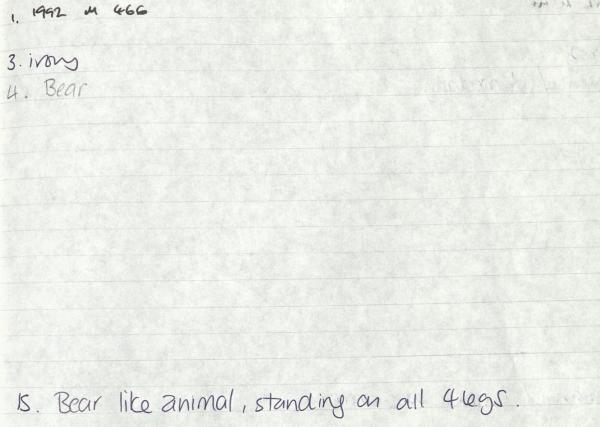 1. 1992 M 466
3. ivory
4. Bear
15. Bear like animal, standing on all 4 legs.